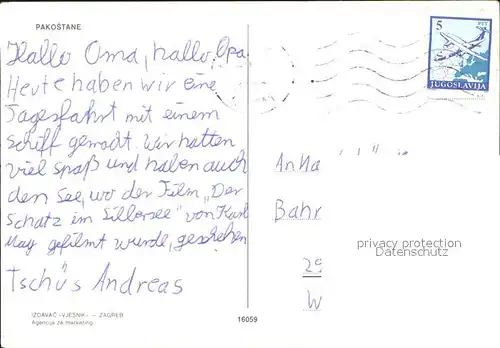 PAKOŠTANE
Hallo Oma, hallo Opa
Heute haben wir eine
Tagesfahrt mit einem
Schiff gemacht. Wir hatten
viel spaß und haben auch
den See, wo der Film „Der
Schatz im Silbersee" von Karl
May gefilmt wurde, gesehen
Tschüs Andreas
5
PTT
JUGOSLAVIJA
Anna
Bahr
29
W
privacy protection
Datenschutz
IZDAVAČ »VJESNIK« — ZAGREB
Agencija za marketing
16059